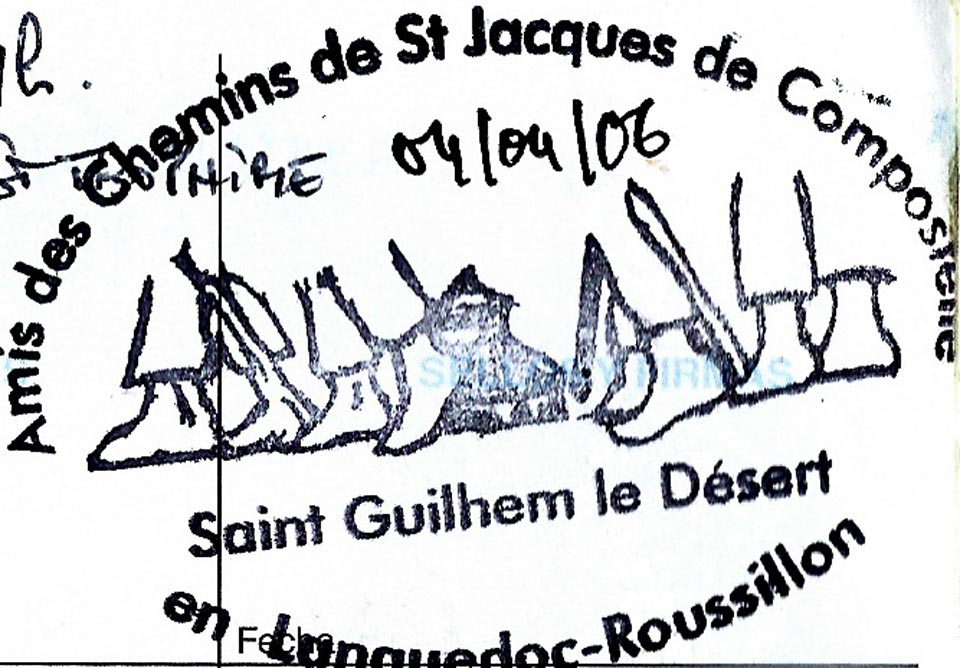 Amis des Chemins de St Jacques de Compostelle
04/04/06
SELLOS Y FIRMAS
Saint Guilhem le Désert
en Languedoc-Roussillon
Fecha